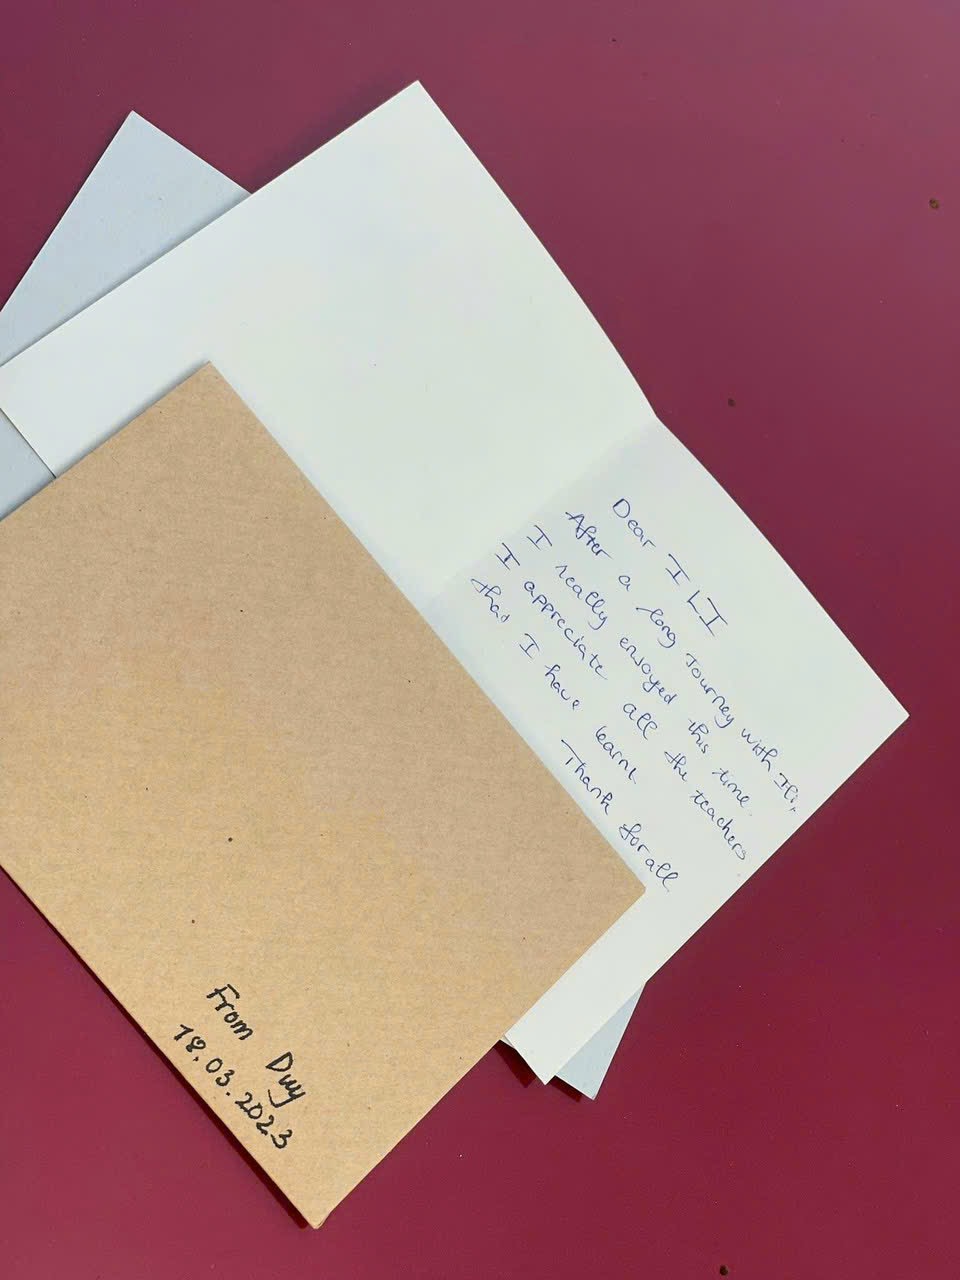 Dear I LI
After a long Journey with Ili,
I really enjoyed this time.
I appreciate all the teachers
that I have learnt
Thank for all
From Duy
18.03.2023